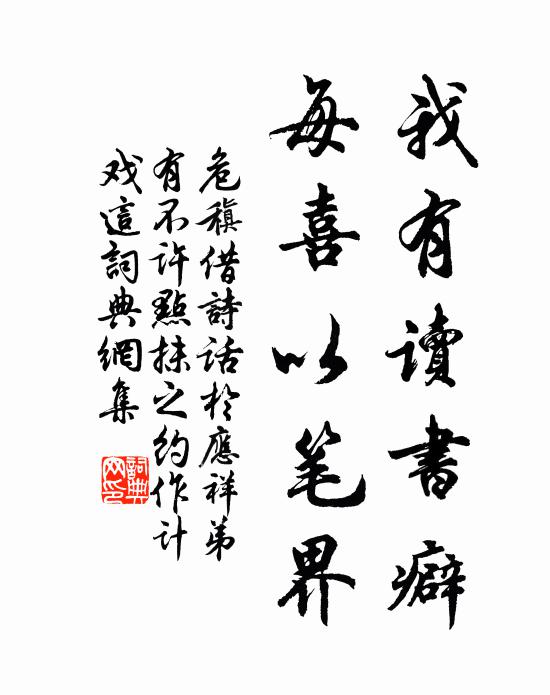 我有讀書癖
每喜以笔界
危稹借詩話於應祥弟
有不許點抹之約作計
戏這詞典網集
詞典網印